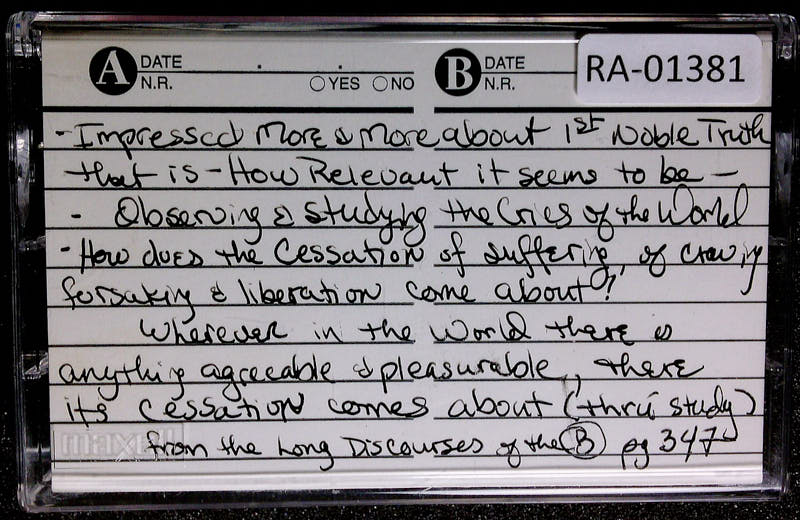 A DATE B DATE RA-01381
N.R. YES NO N.R.
- Impressed More & More about 1st Noble Truth
that is - How Relevant it seems to be -
- Observing & Studying the Cries of the World
- How does the Cessation of suffering, of craving
forsaking & liberation come about?
Wherever in the World there is
anything agreeable & pleasurable, there
its cessation comes about (thru study)
maxell from the Long Discourses of the B pg 347